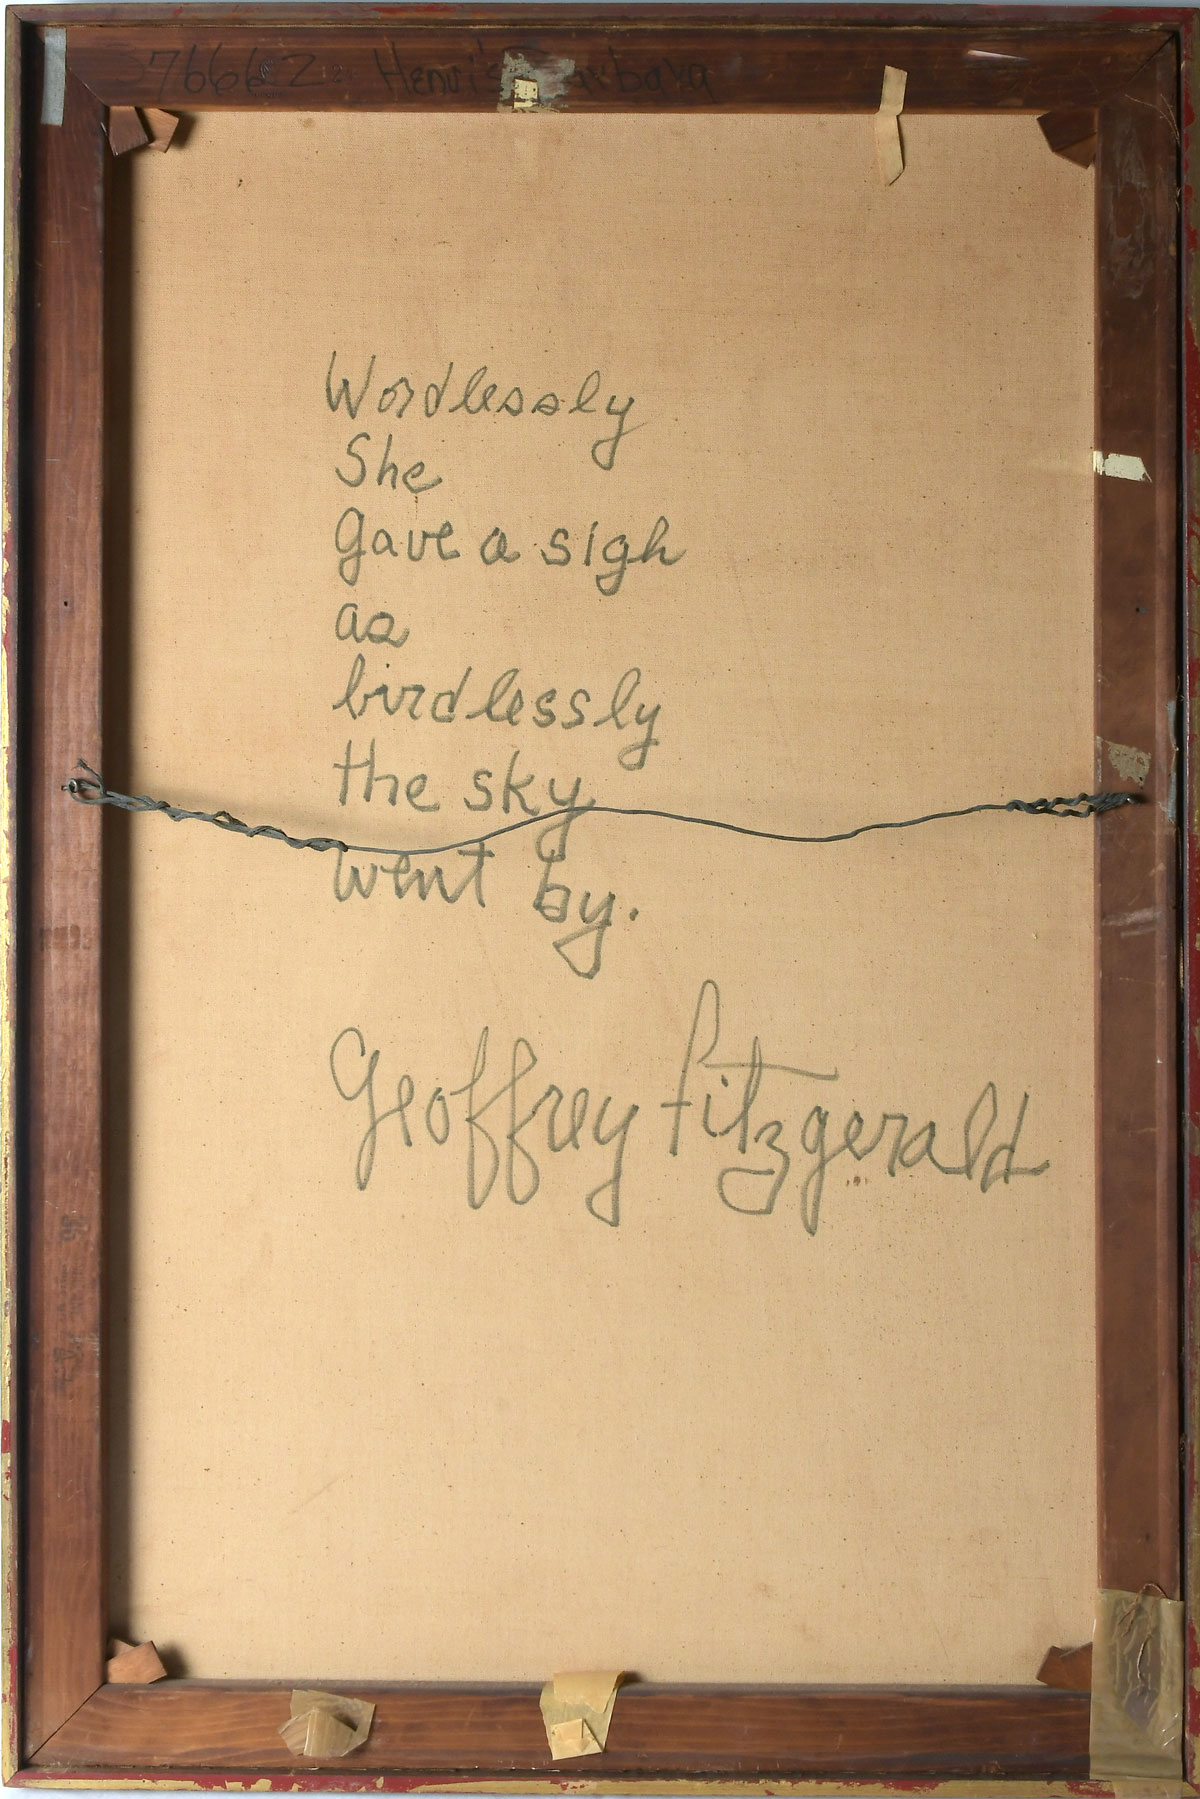 Henri's
Wordlessly
She
gave a sigh
as
birdlessly
the sky
went by.
Geoffrey Fitzgerald